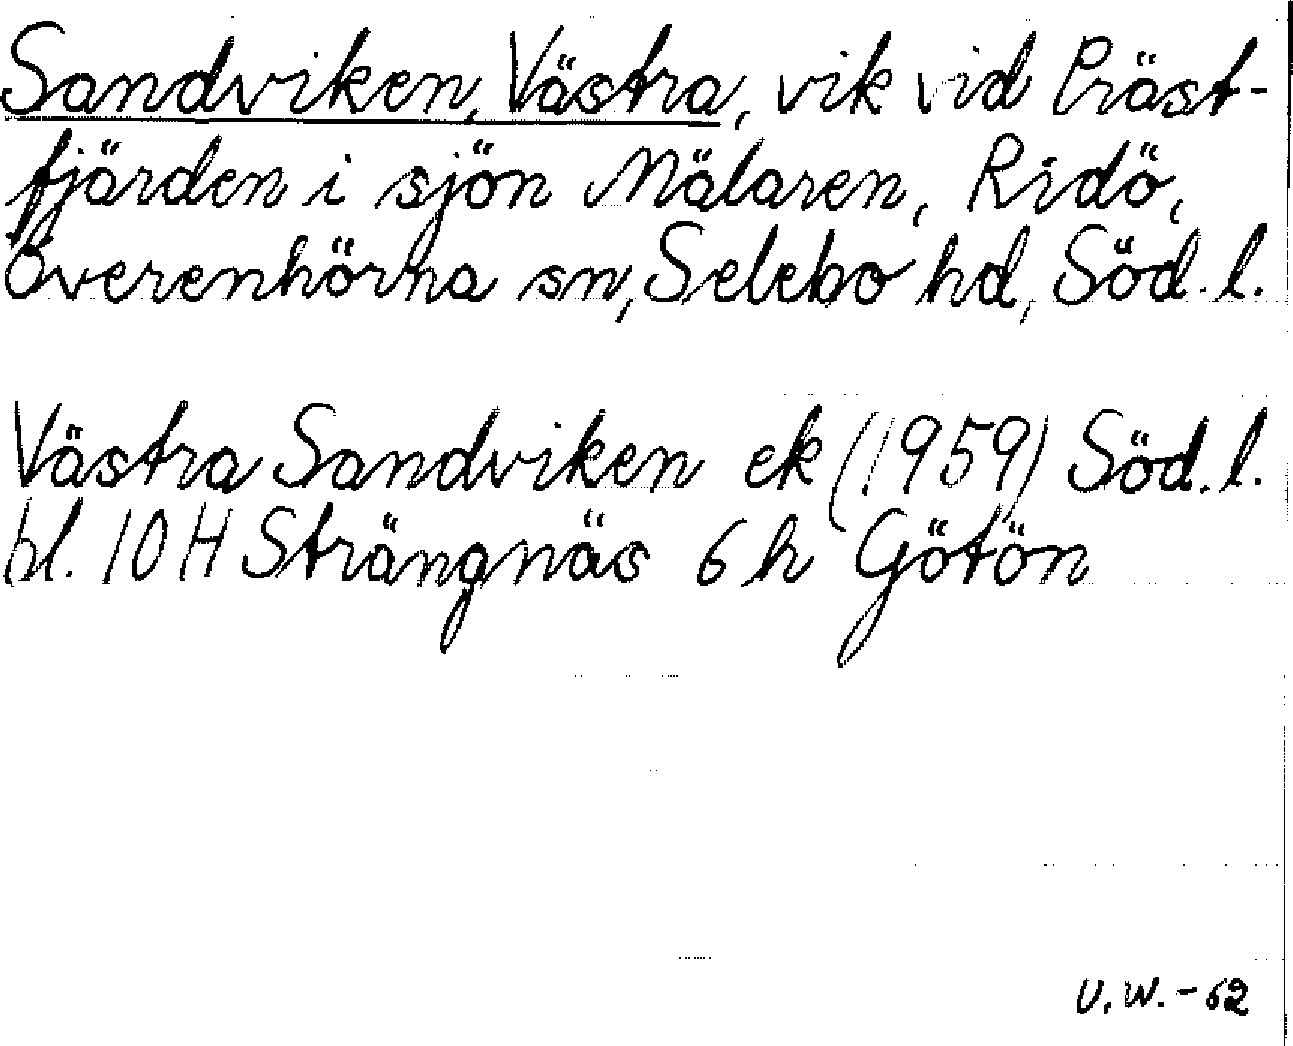 Sandviken, Västra, vik vid Präst-
fjärden i sjön Mälaren, Ridö,
Överenhörna sn, Selebo hd, Söd. l.
Västra Sandviken ek (1959) Söd. l.
bl. 10 H Strängnäs 6 h Götön
U. W. - 62